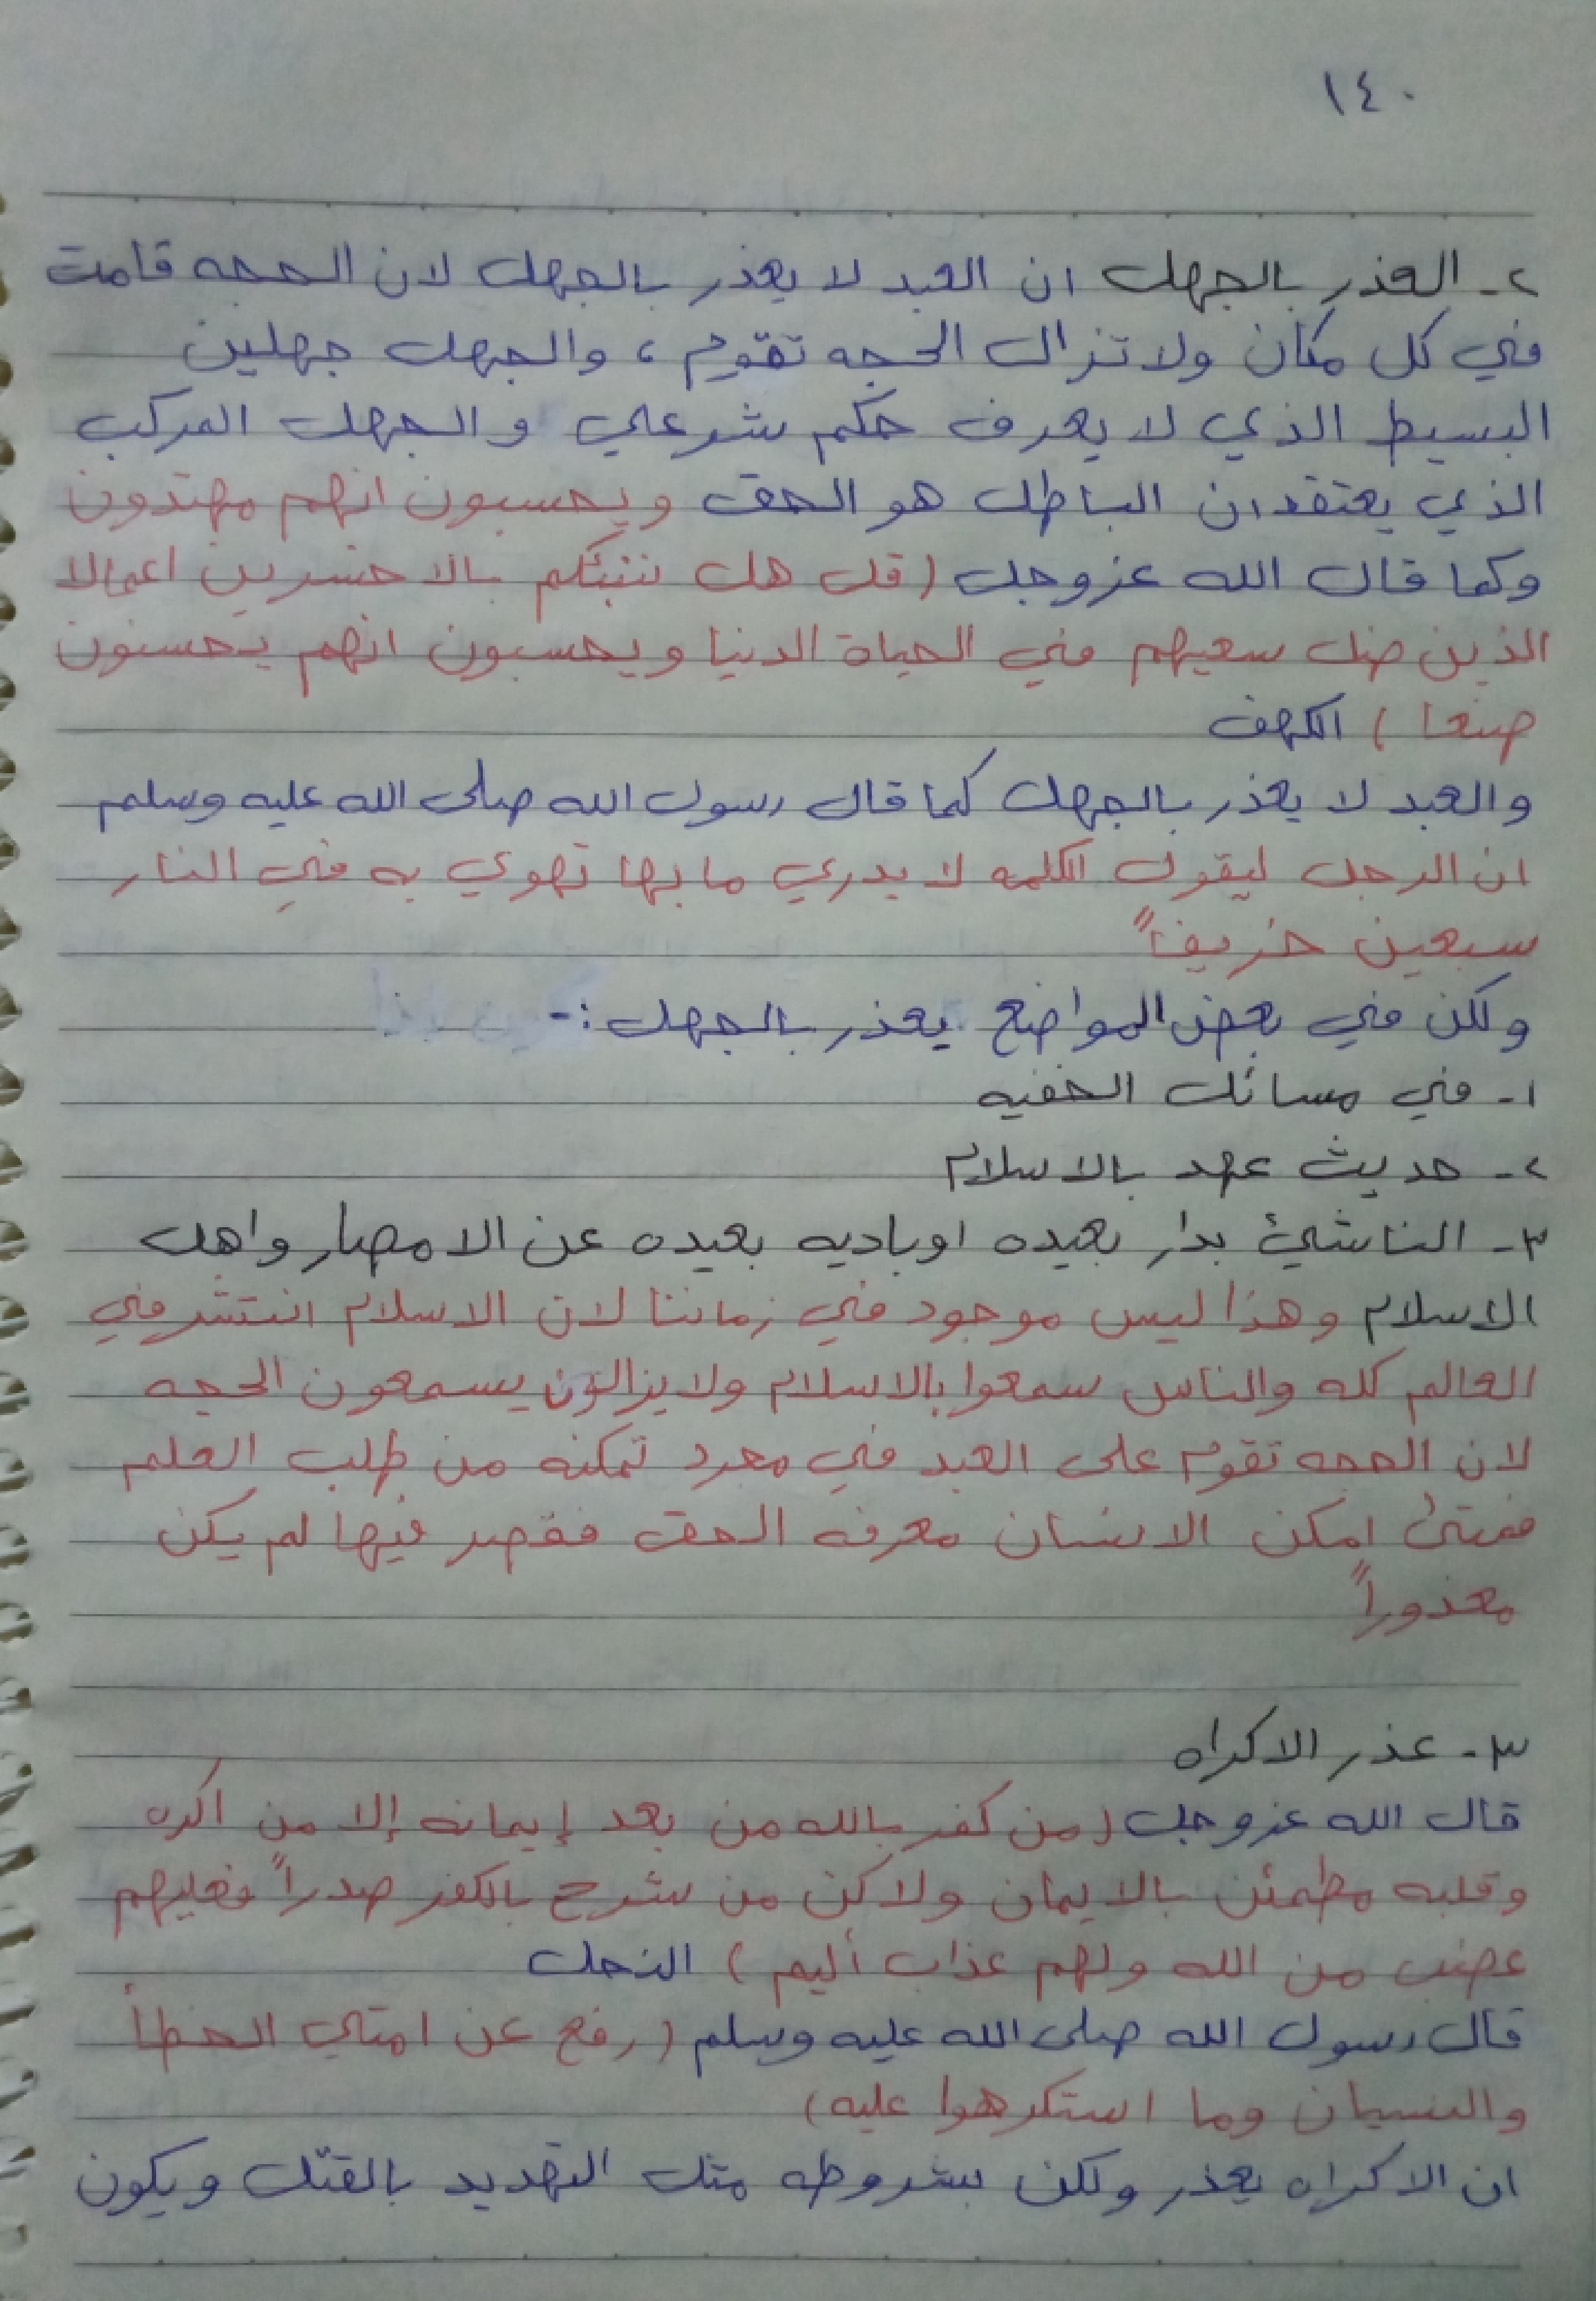 ١٤٠
٢- العذر بالجهل ان العبد لا يعذر بالجهل لان الحجه قامت
في كل مكان ولا تزال الحجه تقوم ، والجهل جهلين
البسيط الذي لا يعرف حكم شرعي والجهل المركب
الذي يعتقد ان الباطل هو الحق ويحسبون انهم مهتدون
وكما قال الله عزوجل (قل هل ننبئكم بالاخسرين اعمالا
الذين ضل سعيهم في الحياة الدنيا ويحسبون انهم يحسنون
صنعا ) الكهف
والعبد لا يعذر بالجهل كما قال رسول الله صلى الله عليه وسلم
ان الرجل ليقول الكلمه لا يدري مابها تهوي به في النار
سبعين خريفاً
ولكن في بعض المواضع يعذر بالجهل :-
١- في مسائل الخفيه
٢- حديث عهد بالاسلام
٣- الناشئ بدار بعيده او باديه بعيده عن الامصار واهل
الاسلام وهذا ليس موجود في زماننا لان الاسلام انتشر في
العالم كله والناس سمعوا بالاسلام ولا يزالون يسمعون الحجه
لان الحجه تقوم على العبد في مجرد تمكنه من طلب العلم
فمتى امكن الانسان معرفه الحق فقصر فيها لم يكن
معذوراً
٣- عذر الاكراه
قال الله عزوجل (من كفر بالله من بعد إيمانه إلا من اكره
وقلبه مطمئن بالايمان ولاكن من شرح بالكفر صدراً فعليهم
غضب من الله ولهم عذاب أليم ) النحل
قال رسول الله صلى الله عليه وسلم (رفع عن امتي الخطأ
والنسيان وما استكرهوا عليه)
ان الاكراه يعذر ولكن بشروطه مثل التهديد بالقتل ويكون